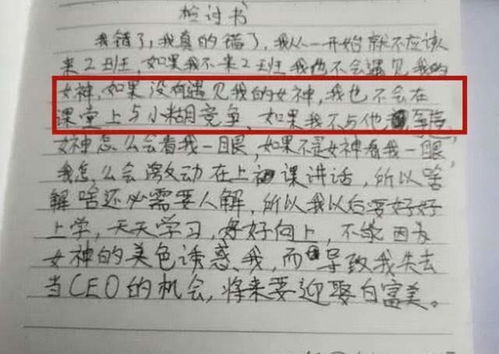 检讨书
我错了,我真的错了,我从一开始就不应该
来2班,如果我不来2班我也不会遇见我的
女神,如果没有遇见我的女神,我也不会在
课堂上与小糊竞争,如果我不与他
女神怎么会看我一眼,如果不是女神看我一眼
我怎么会激动在上课讲话,所以啥
解啥还必需要人解,所以我以后要好好
上学,天天学习,每好向上,不能因为
女神的美色诱惑我,而导致我失去
当CEO的机会,将来要迎娶白富美。